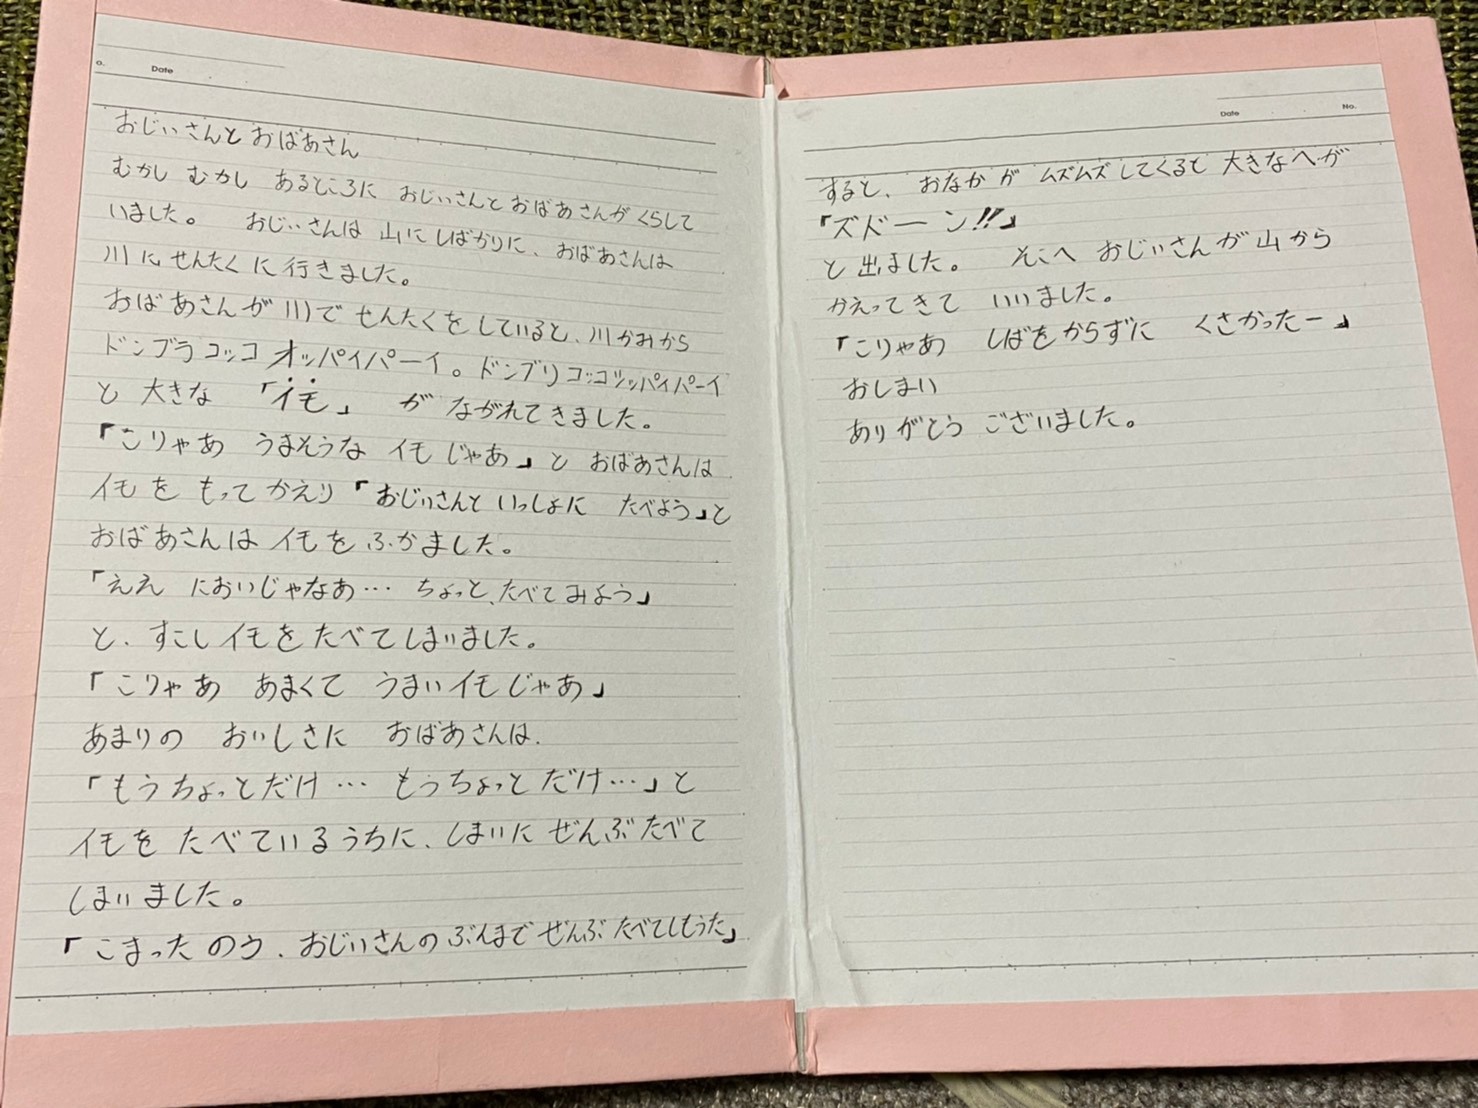 o.
Date
おじいさんとおばあさん
むかし むかし あるところに おじいさんとおばあさんがくらして
いました。 おじいさんは 山に しばかりに、おばあさんは
川に せんたくに行きました。
おばあさんが川で せんたくをしていると、川かみから
ドンブラコッコ オッパイパーイ。ドンブリコッコツッパイパーイ
と 大きな 「イモ」 が ながれてきました。
「こりゃあ うまそうな イモじゃあ」と おばあさんは
イモを もって かえり「おじいさんと いっしょに たべよう」と
おばあさんは イモを ふかました。
「ええ においじゃなあ… ちょっと、たべてみよう」
と、すこしイモをたべてしまいました。
「こりゃあ あまくて うまいイモじゃあ」
あまりの おいしさに おばあさんは、
「もうちょっとだけ… もうちょっとだけ…」と
イモを たべているうちに、しまいに ぜんぶたべて
しまいました。
「こまったのう、おじいさんのぶんまで ぜんぶ たべてしもうた」
Date
No.
すると、おなかが ムズムズしてくると 大きなへが
「ズドーン!!」
と 出ました。 そこへ おじいさんが山から
かえってきて いいました。
「こりゃあ しばをからずに くさかったー」
おしまい
ありがとう ございました。